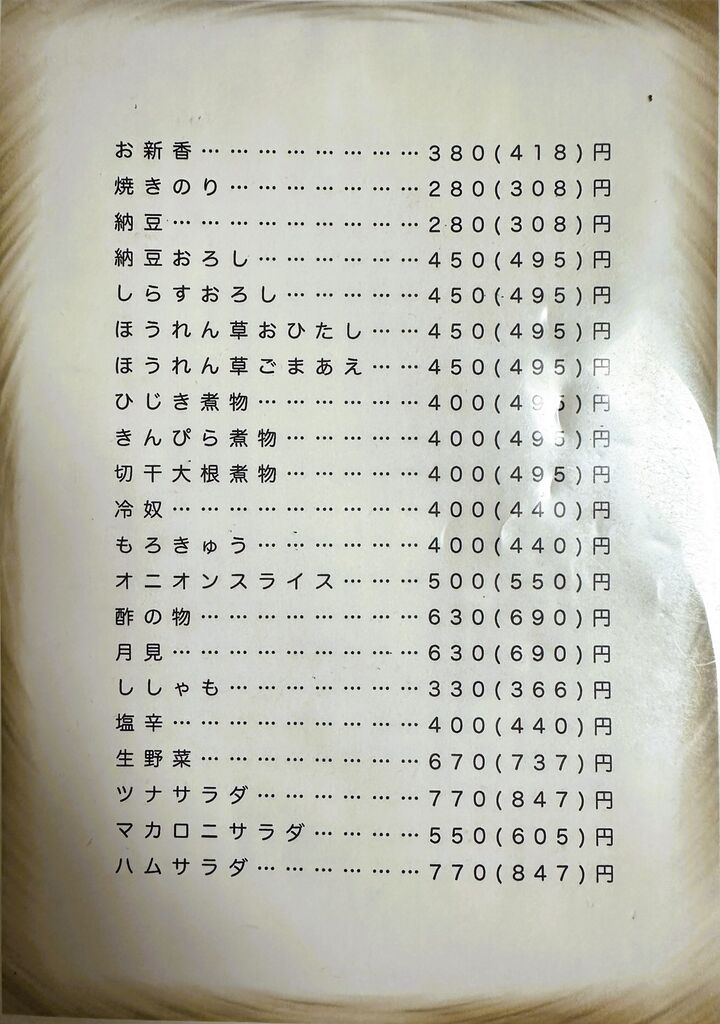 お新香……………………380(418)円
焼きのり…………………280(308)円
納豆………………………280(308)円
納豆おろし………………450(495)円
しらすおろし……………450(495)円
ほうれん草おひたし……450(495)円
ほうれん草ごまあえ……450(495)円
ひじき煮物………………400(495)円
きんぴら煮物……………400(495)円
切干大根煮物……………400(495)円
冷奴………………………400(440)円
もろきゅう………………400(440)円
オニオンスライス………500(550)円
酢の物……………………630(690)円
月見………………………630(690)円
ししゃも…………………330(366)円
塩辛………………………400(440)円
生野菜……………………670(737)円
ツナサラダ………………770(847)円
マカロニサラダ…………550(605)円
ハムサラダ………………770(847)円